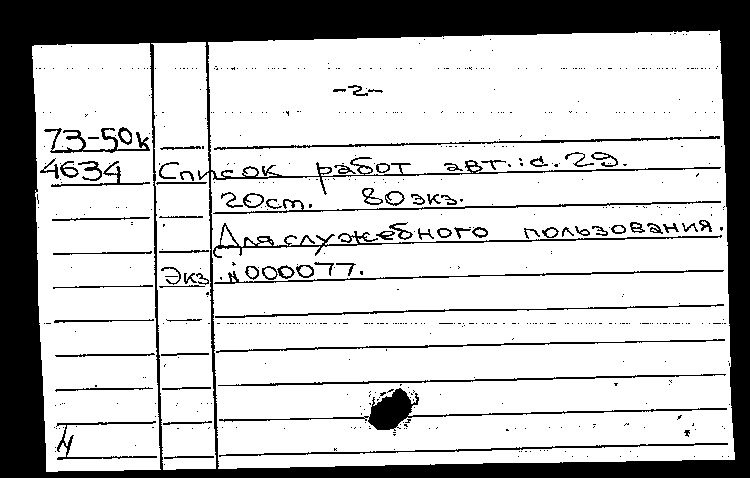 -2-
73-50к
4634 Список работ авт.: с. 29.
20см. 80экз.
Для служебного пользования.
Экз. №000077.